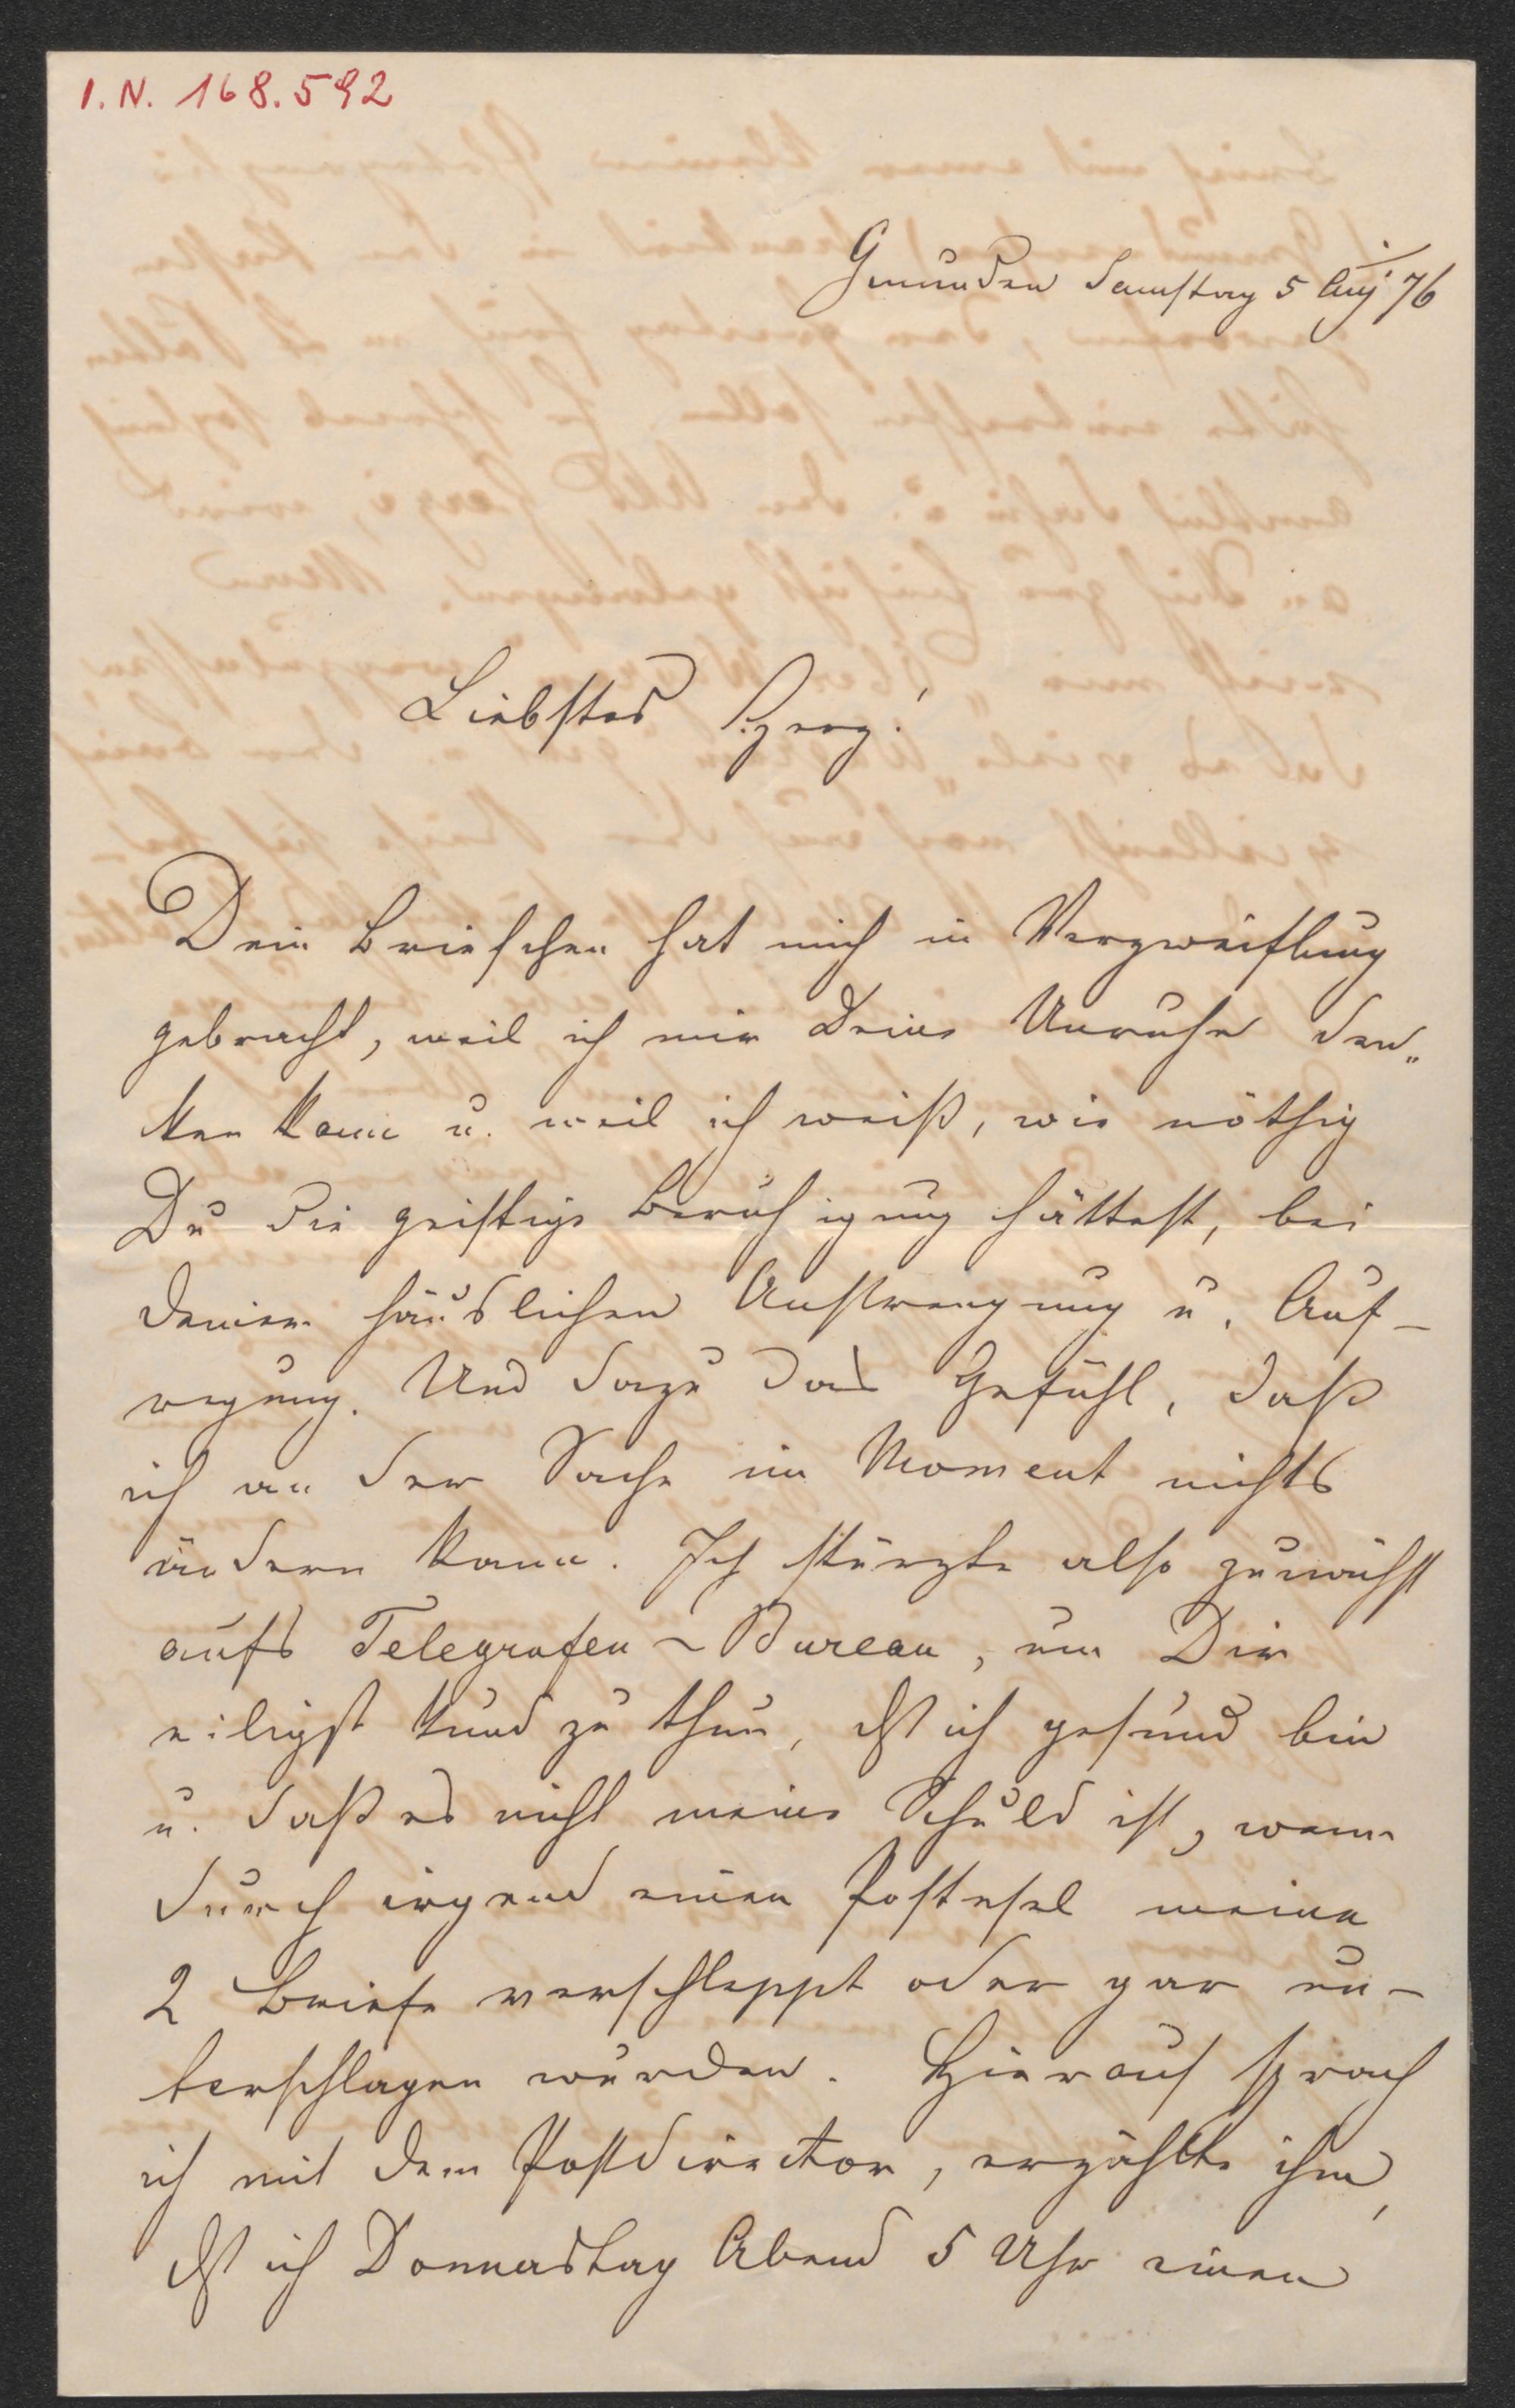 I. N. 168.592
Gmunden Samstag 5 Aug 76
Liebstes Herz!
Dein Briefchen hat mich in Verzweiflung
gebracht, weil ich mir Deine Unruhe den„
ken kann u. weil ich weiß, wie nöthig
Du die geistige Beruhigung hättest, bei
Deiner häuslichen Anstrengung u. Auf-
regung. Und dazu das Gefühl, daß
ich an der Sache im Moment nichts
ändern kann. Ich stürzte also zunächst
aufs Telegrafen-Bureau, um Dir
eiligst kund zu thun, dß ich gesund bin
u. daß es nicht meine Schuld ist, wenn
durch irgend einen Postesel meine
2 Briefe verschleppt oder gar un-
terschlagen wurden. Hierauf sprach
ich mit dem Postdirector, erzählte ihm,
dß ich Donnerstag Abend 5 Uhr einen